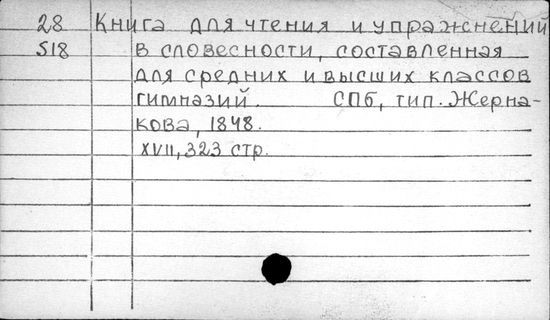 28 Книга для чтения и упражнений
518 в словесности, составленная
для средних и высших классов
гимназий. СПб, тип. Жерна-
кова, 1848.
XVII, 323 стр.